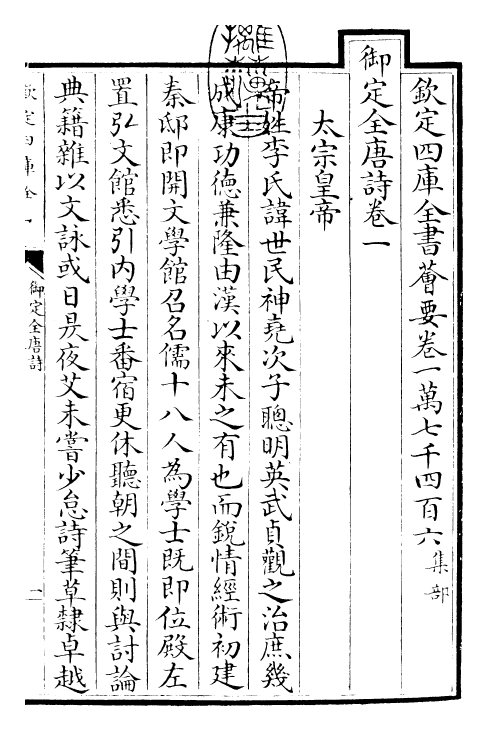 欽定四庫全書薈要卷一萬七千四百六 集部
御定全唐詩卷一
太宗皇帝
帝姓李氏諱世民神堯次子聰明英武貞觀之治庶幾
成康功徳兼隆由漢以來未之有也而銳情經術初建
秦邸即開文學館召名儒十八人為學士既即位殿左
置弘文館悉引内學士番宿更休聽朝之間則與討論
典籍雜以文詠或日昃夜艾未嘗少怠詩筆草隸卓越
欽定四庫全
御定全唐詩
一